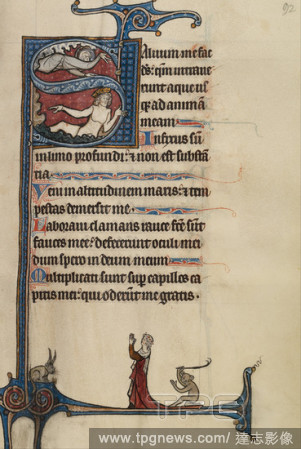 92
Aluum me fac
es: qm intraue
runt aque us
q; ad animā
meam.
Infixus sū
in limo profundi: & non est substā
tia.
Veni in altitudinem maris: & tem
pestas demersit me.
Laboraui clamans rauce fcē sunt
fauces mee: defecerunt oculi mei
dum spero in deum meum.
Multiplicati sunt sup capillos ca
pitis mei: qui oderunt me gratis.
TPG
www.tpgnews.com/ 達志影像